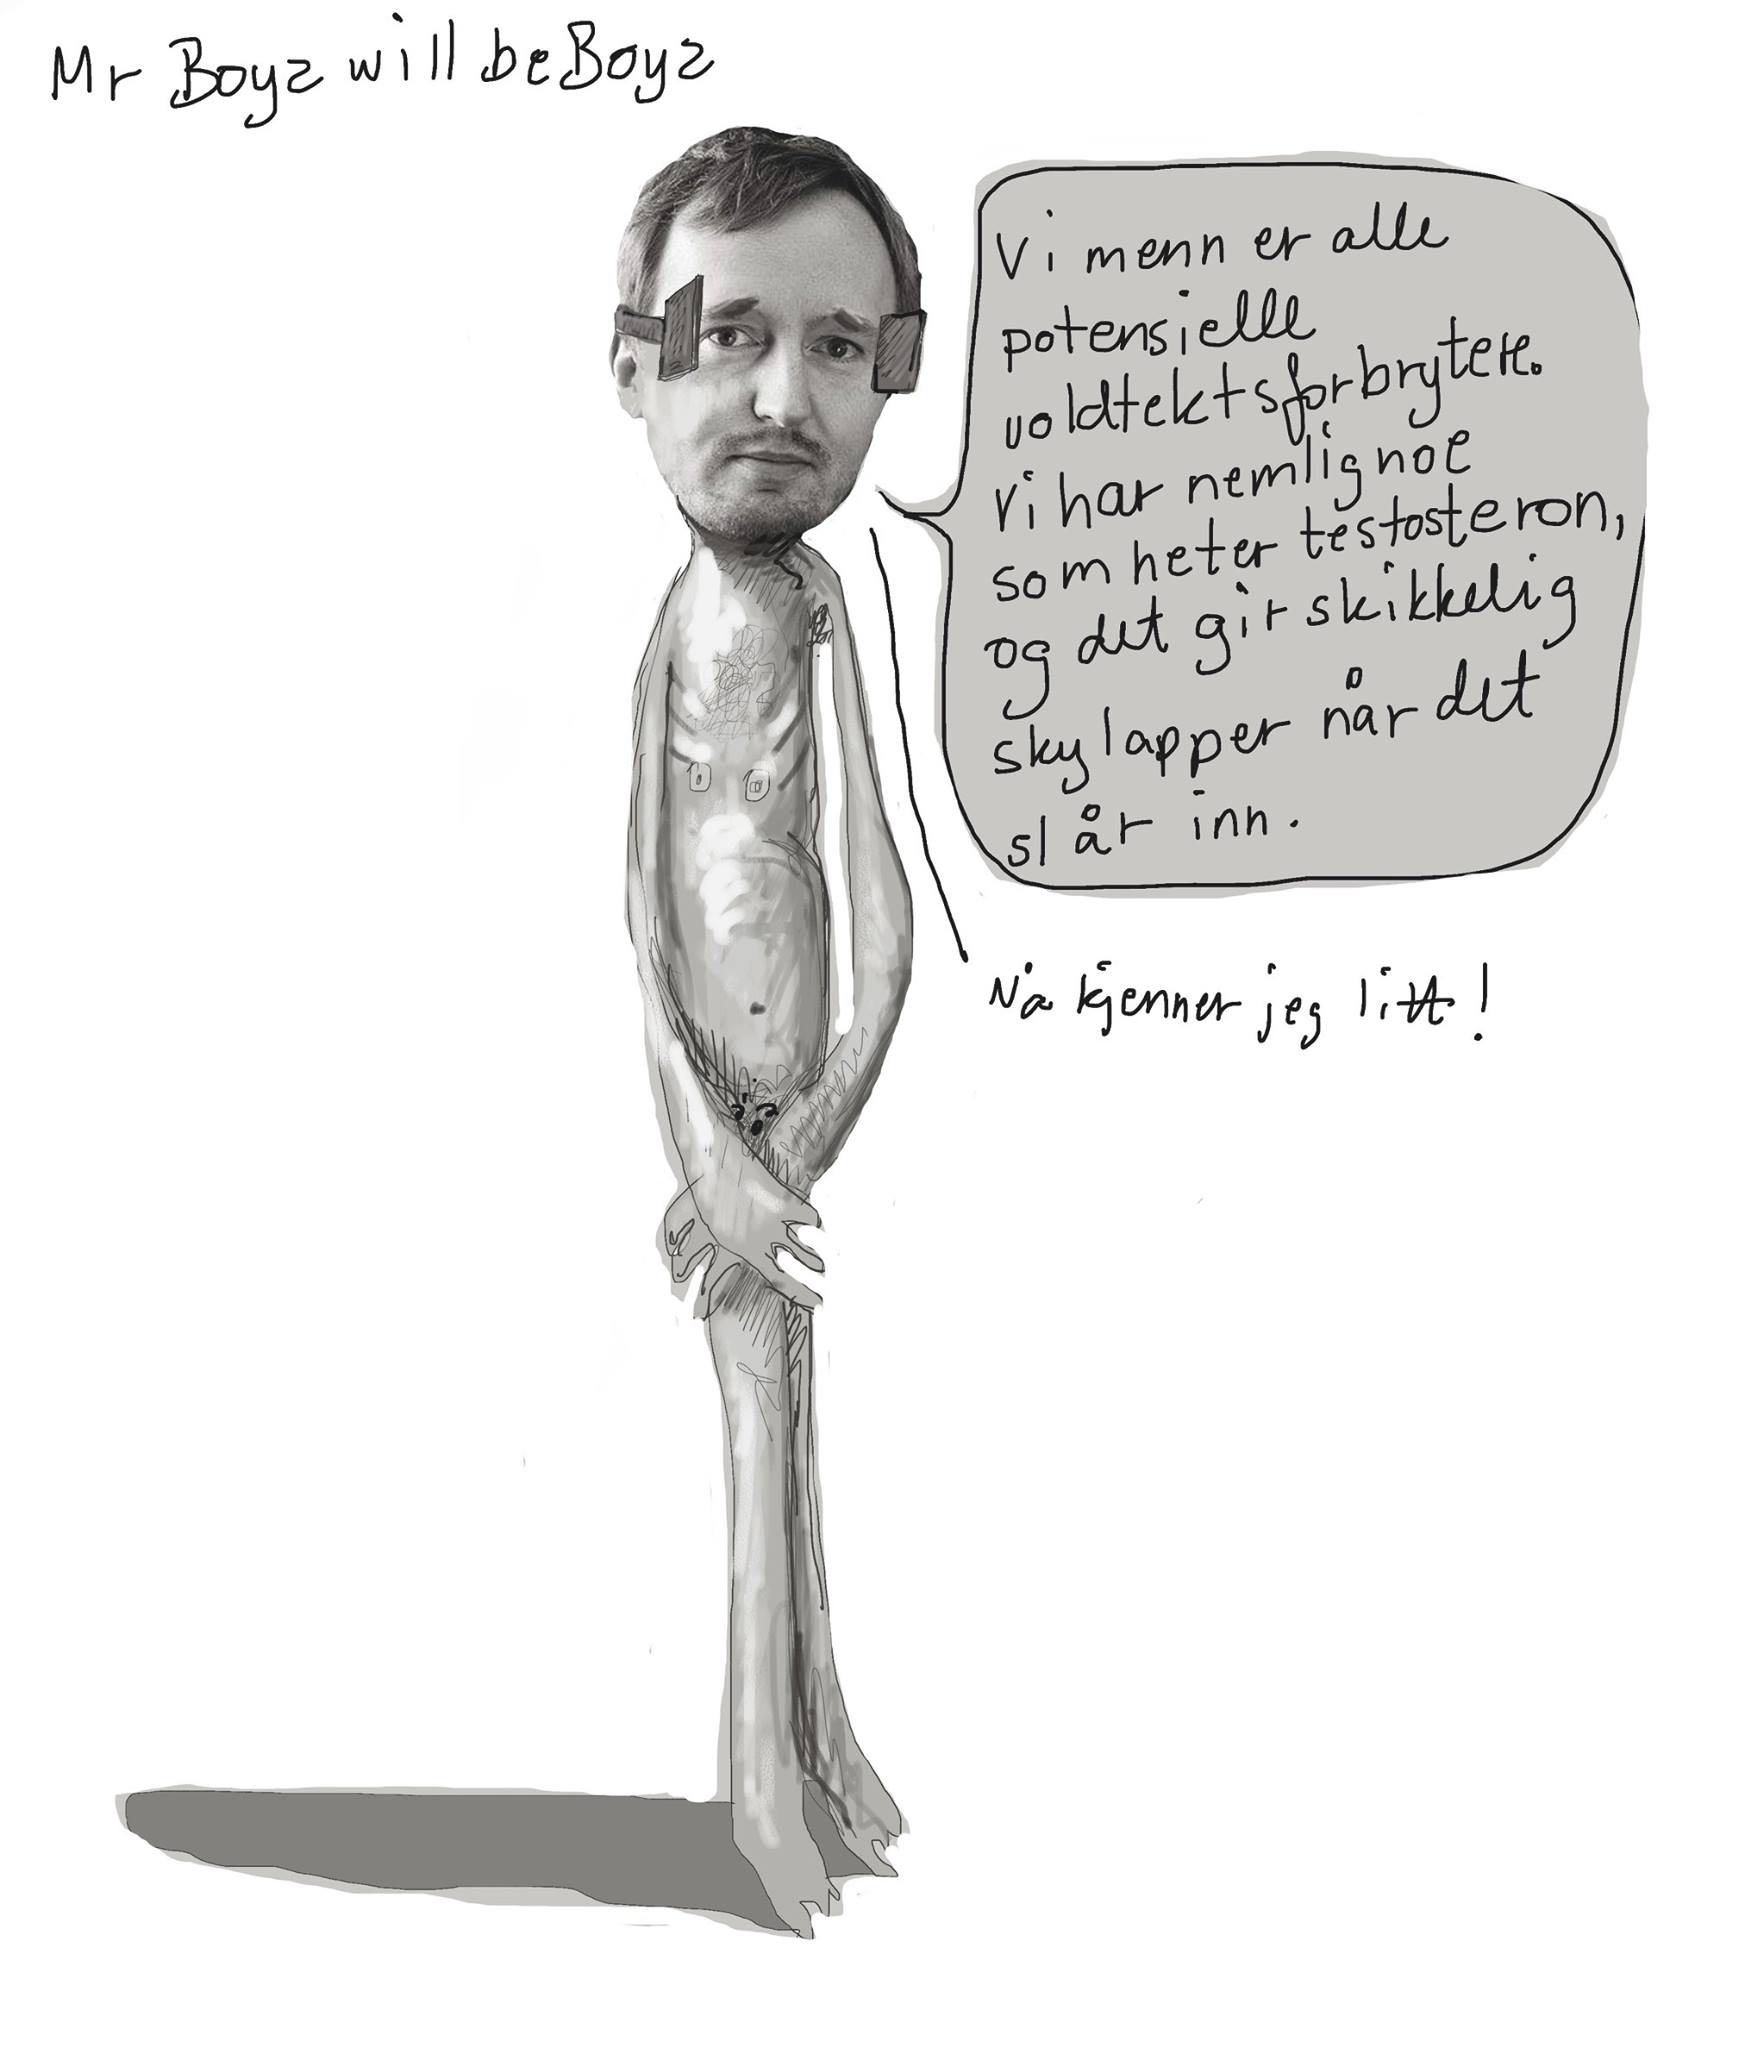 Mr Boyz will be Boyz
Vi menn er alle
potensielle
voldtektsforbrytere.
Vi har nemlig noe
som heter testosteron,
og det gir skikkelig
skylapper når det
slår inn.
Nå kjenner jeg litt!